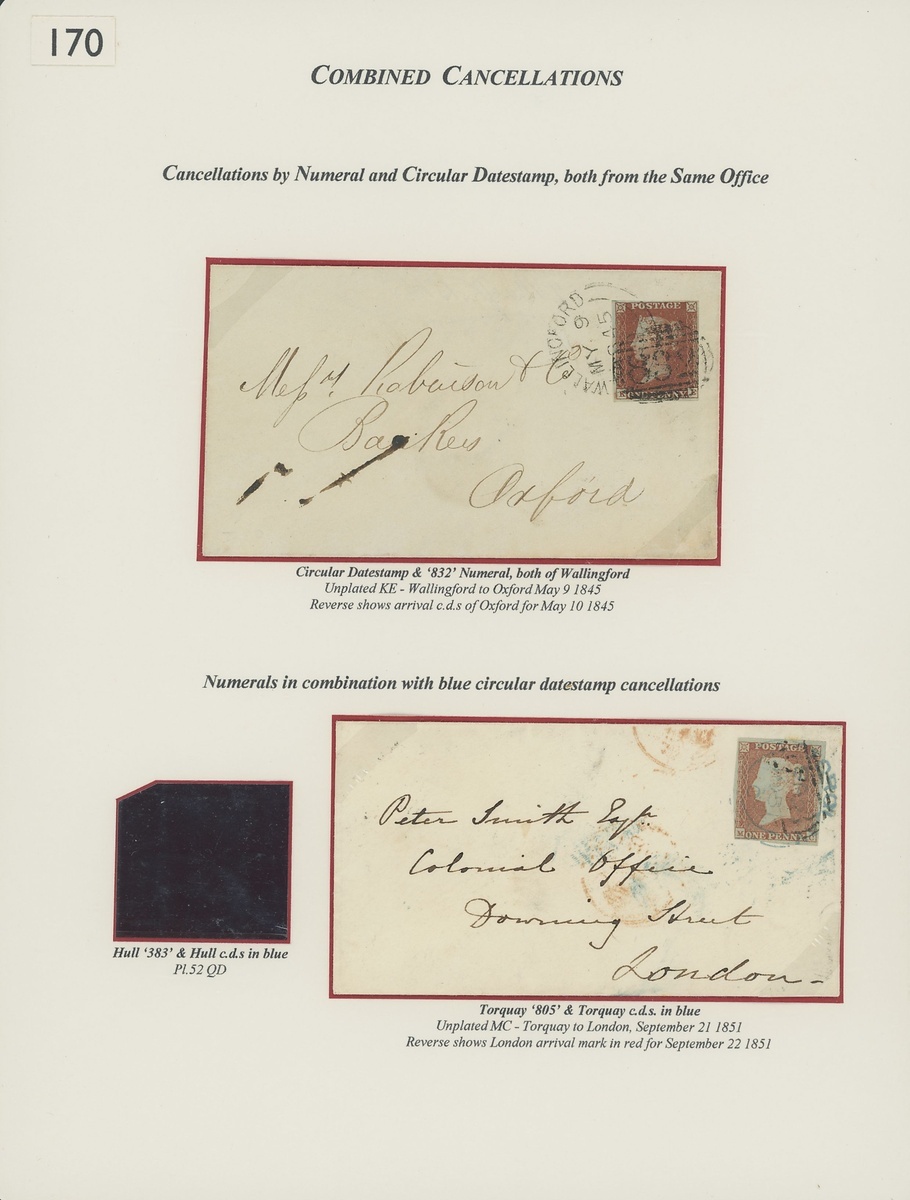 170
COMBINED CANCELLATIONS
Cancellations by Numeral and Circular Datestamp, both from the Same Office
WALLINGFORD
MY 9
1845
POSTAGE
Messrs. Robinson & Co
Bankers
Oxford
Circular Datestamp & ‘832’ Numeral, both of Wallingford
Unplated KE - Wallingford to Oxford May 9 1845
Reverse shows arrival c.d.s of Oxford for May 10 1845
Numerals in combination with blue circular datestamp cancellations
POSTAGE
ONE PENNY
Peter Smith Esqr.
Colonial Office
Downing Street
London -
Hull ‘383’ & Hull c.d.s in blue
Pl.52 QD
Torquay ‘805’ & Torquay c.d.s. in blue
Unplated MC - Torquay to London, September 21 1851
Reverse shows London arrival mark in red for September 22 1851